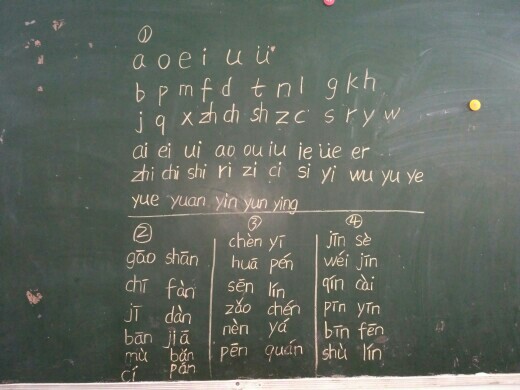 ①
a o e i u ü
b p m f d t n l g k h
j q x zh ch sh z c s r y w
ai ei ui ao ou iu ie üe er
zhi chi shi ri zi ci si yi wu yu ye
yue yuan yin yun ying
②
gāo shān
chī fàn
jī dàn
bān jiā
mù bǎn
cí pán
③
chèn yī
huā pén
sēn lín
zǎo chén
nèn yá
pēn quán
④
jīn sè
wéi jīn
qín cài
pīn yīn
bīn fēn
shù lín